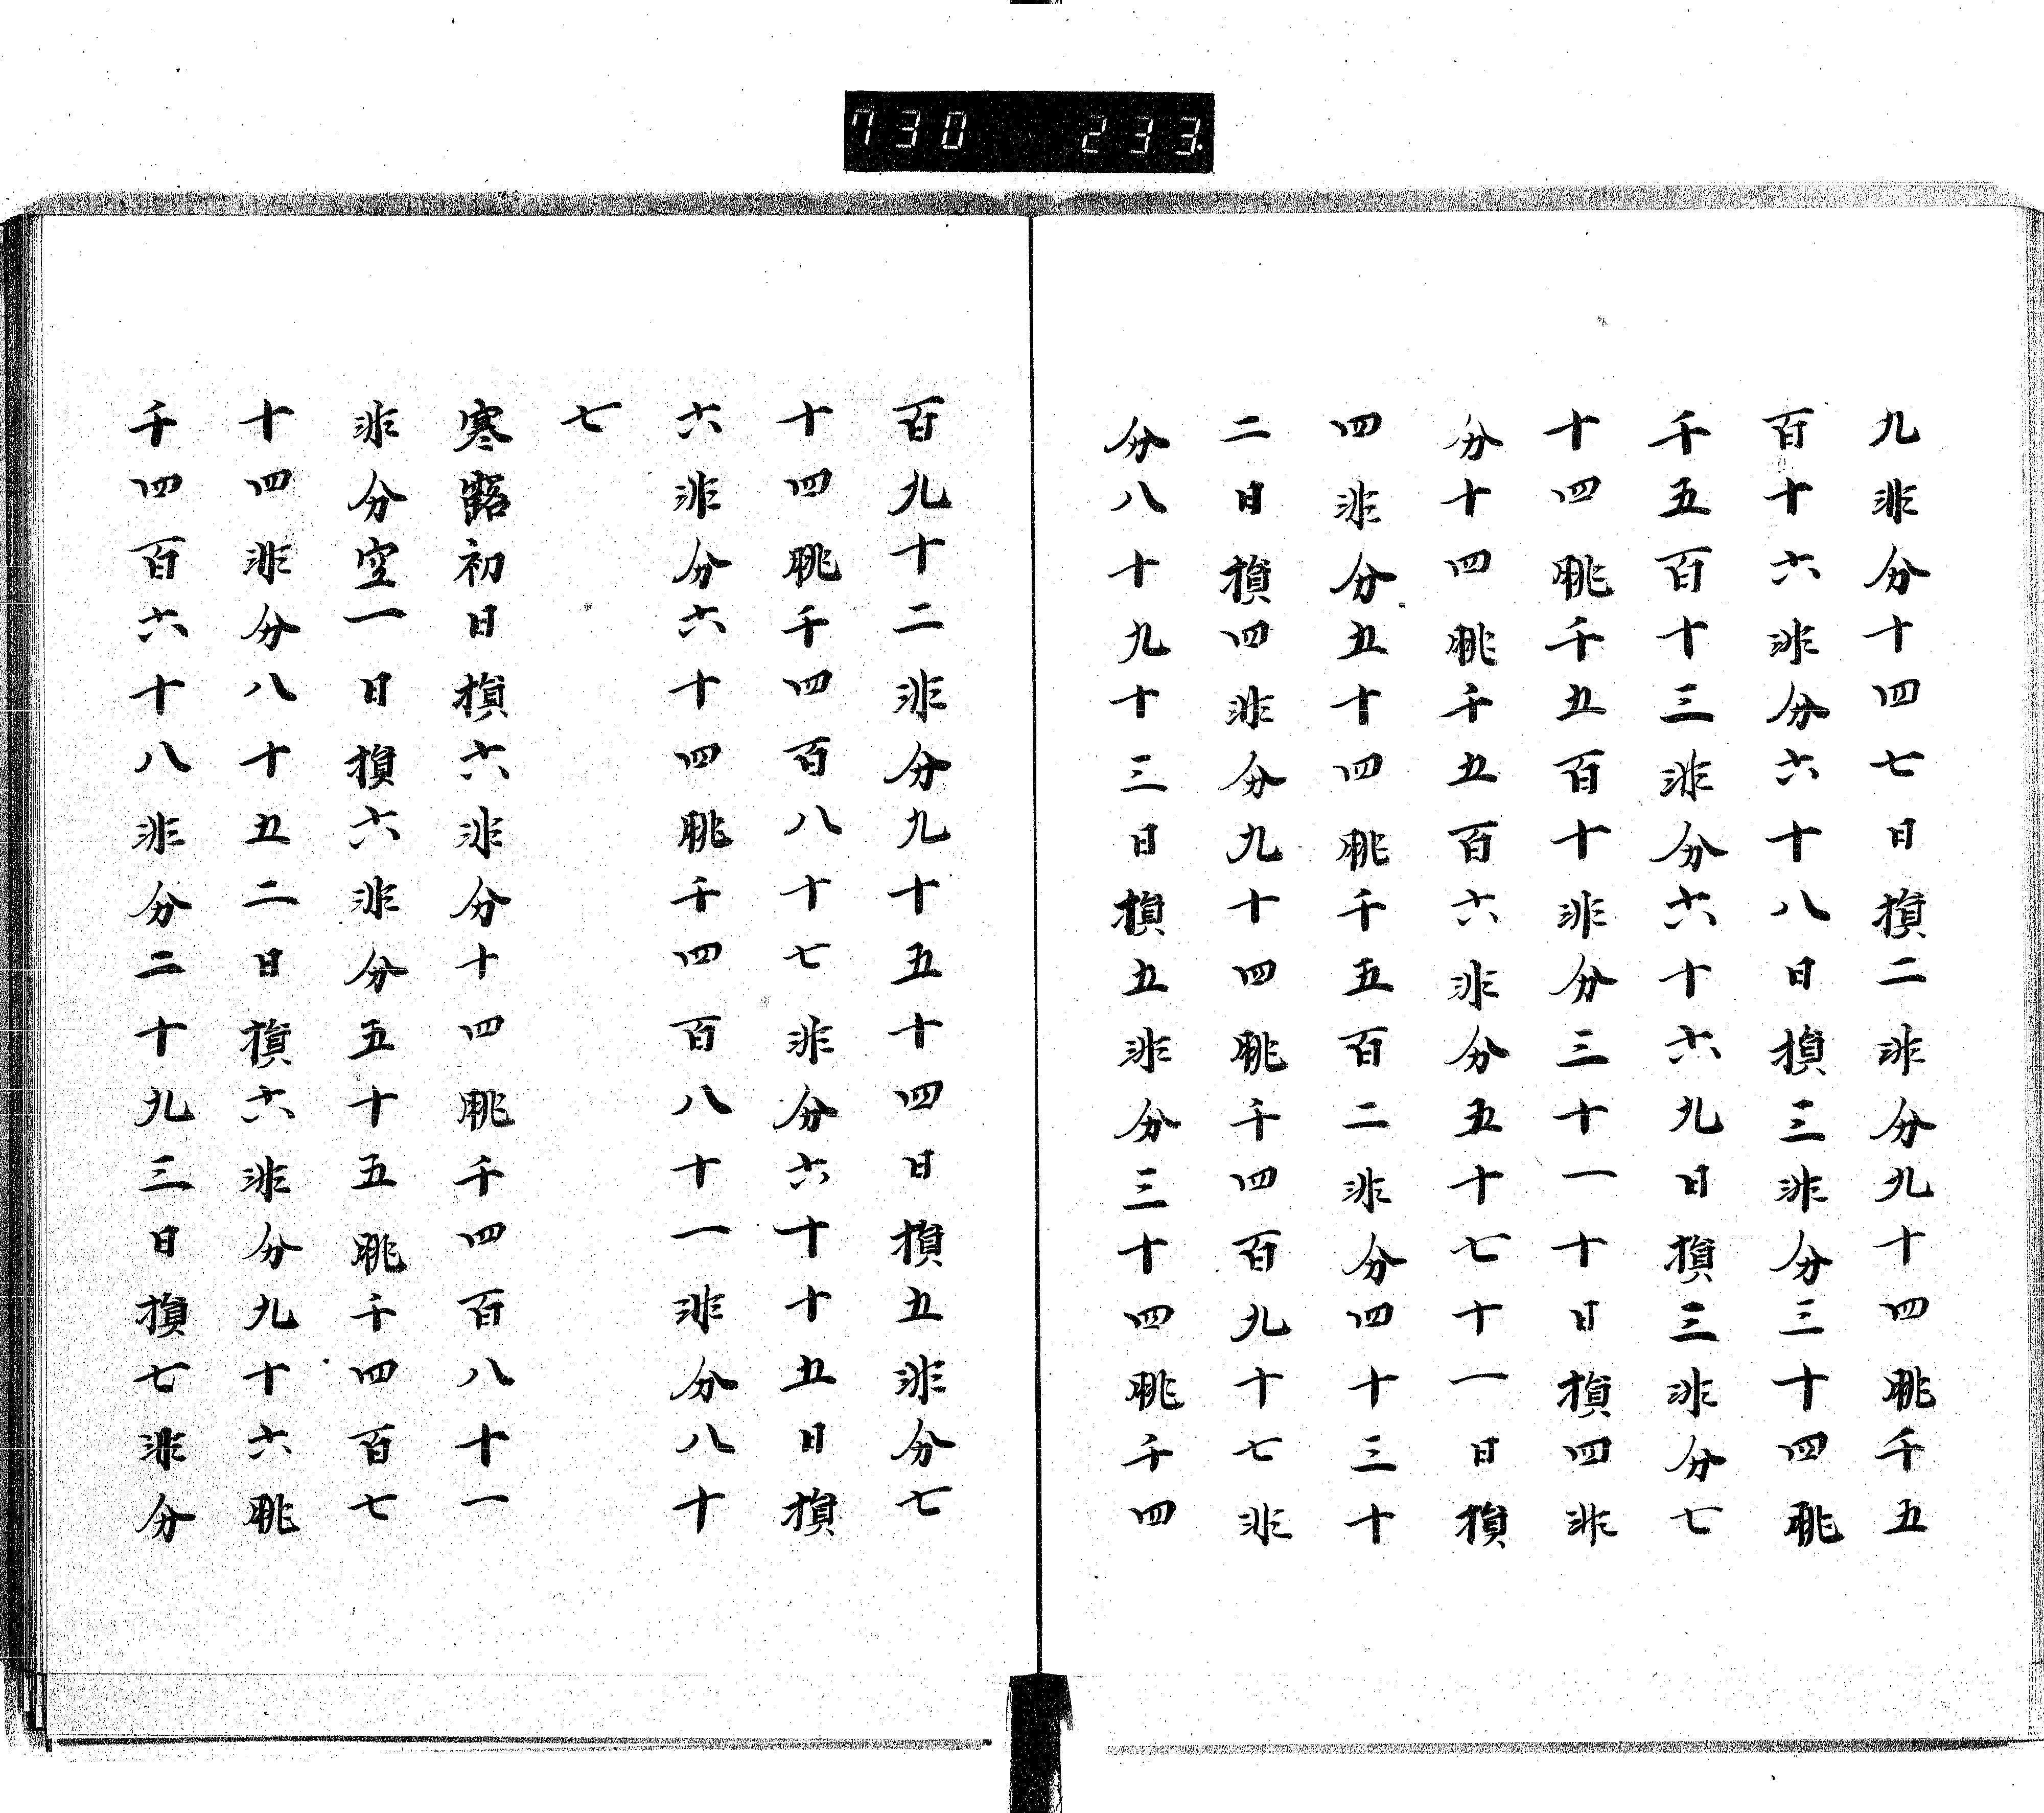 730 233.
九非分十四七日損二非分九十四朓千五
百十六非分六十八日損三非分三十四朓
千五百十三非分六十六九日損三非分七
十四朓千五百十非分三十一十日損四非
分十四朓千五百六非分五十七十一日損
四非分五十四朓千五百二非分四十三十
二日損四非分九十四朓千四百九十七非
分八十九十三日損五非分三十四朓千四
百九十二非分九十五十四日損五非分七
十四朓千四百八十七非分六十十五日損
六非分六十四朓千四百八十一非分八十
七
寒露初日損六非分十四朓千四百八十一
非分空一日損六非分五十五朓千四百七
十四非分八十五二日損六非分九十六朓
千四百六十八非分二十九三日損七非分